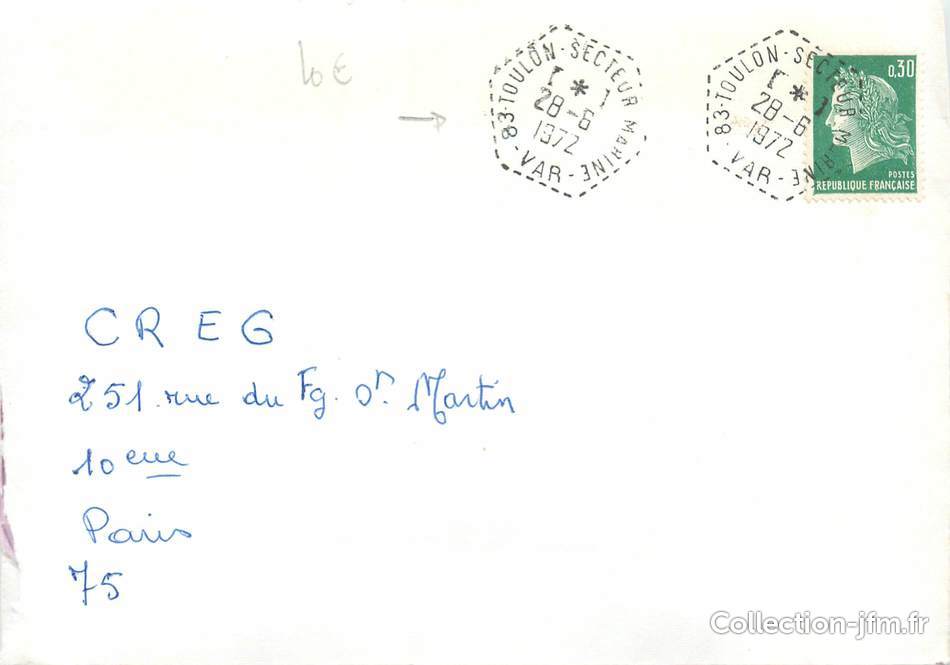 10€
83-TOULON-SECTEUR MARINE
*
28-6
1972
-VAR-
83-TOULON-SECTEUR MARINE
*
28-6
1972
-VAR-
0,30
POSTES
REPUBLIQUE FRANÇAISE
CREG
251. rue du Fg. Sn. Martin
10eme
Paris
75
Collection-jfm.fr